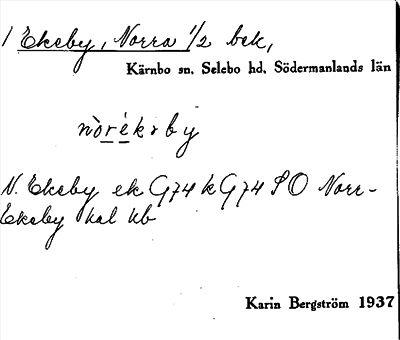 1 Ekeby, Norra 1/2 bek,
Kärnbo sn. Selebo hd. Södermanlands län
nòréksby
N. Ekeby ek G74 k G74 SO Norr-
Ekeby kal kb
Karin Bergström 1937